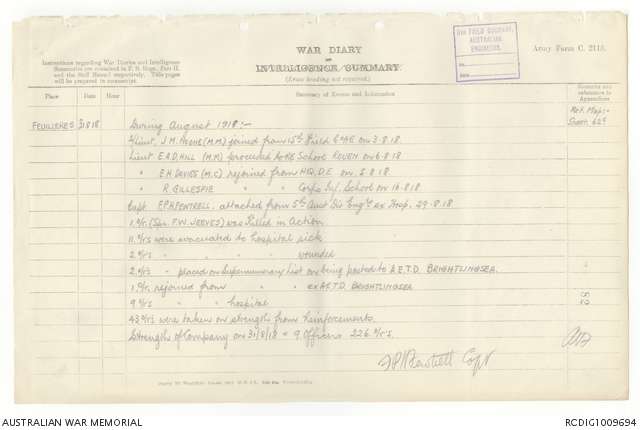 Instructions regarding War Diaries and Intelligence
Summaries are contained in F. S. Regs., Part II.
and the Staff Manual respectively. Title pages
will be prepared in manuscript.
WAR DIARY
or
INTELLIGENCE SUMMARY.
(Erase heading not required.)
FIELD COMPANY,
AUSTRALIAN
ENGINEERS.
Army Form C. 2118.
Place
Date
Hour
Summary of Events and Information
Remarks and
references to
Appendices
Ref. Map:-
Sheet 62c
FEUILLERES 31818 During August 1918:-
Lieut. J.M. (M.M) joined from 15th Field Coy AE on 3-8-18
Lieut E.A.D. HILL (M.M) proceeded to RE School ROUEN on 6-8-18
" E.H. DAVIES (M.C) rejoined from HQ, D.E on 5-8-18
" R. GILLESPIE " " Corps School on 16-8-18
Capt attached from 5th Aust Div Eng'rs ex Hosp. 29-8-18
1 O/r (Spr. F.W. JEEVES) was Killed in Action
11 O/rs were evacuated to hospital sick
2 O/rs " " " wounded
2 O/rs " placed on Supernumerary List on being posted to A.E.T.D. BRIGHTLINGSEA.
1 O/r. rejoined from " ex A.E.T.D. BRIGHTLINGSEA
9 O/rs " " hospital
43 O/rs were taken on strength from reinforcements.
Strength of Company on 31/8/18 = 9 Officers 226 O/rs.
Capt
82
AUSTRALIAN WAR MEMORIAL
RCDIG1009694